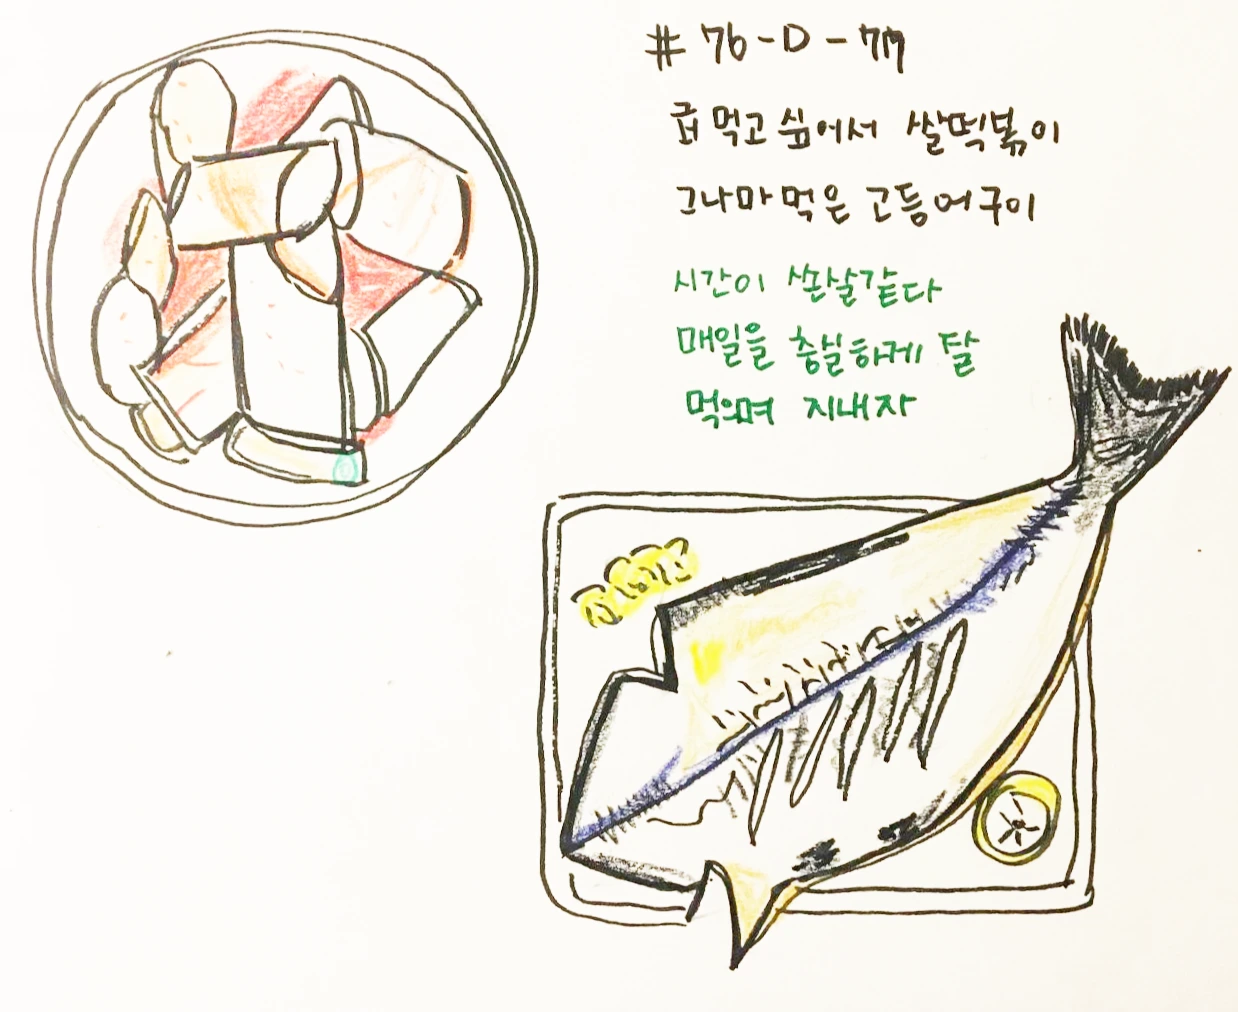 # 76 - D -
급 먹고 싶어서 쌀떡볶이
그나마 먹은 고등어구이
시간이 쏜살같다
매일을 충실하게 잘
먹으며 지내자